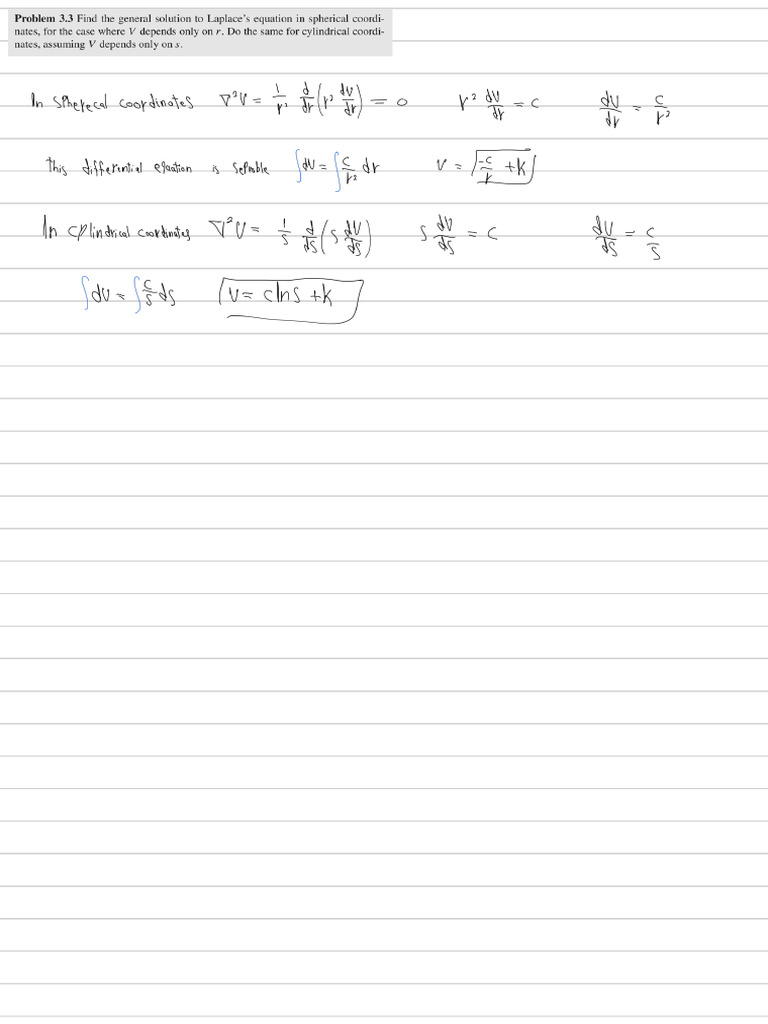 Problem 3.3 Find the general solution to Laplace's equation in spherical coordi-
nates, for the case where V depends only on r. Do the same for cylindrical coordi-
nates, assuming V depends only on s.
In spherecal coordinates ∇²V = 1/r² d/dr (r² dV/dr) = 0 r² dV/dr = c dV/dr = c/r²
this differential eqation is seprable ∫dV = ∫ c/r² dr V = -c/r + k
In cylindrical coordinates ∇²V = 1/s d/ds (s dV/ds) s dV/ds = c dV/ds = c/s
∫dV = ∫ c/s ds V = c ln s + k